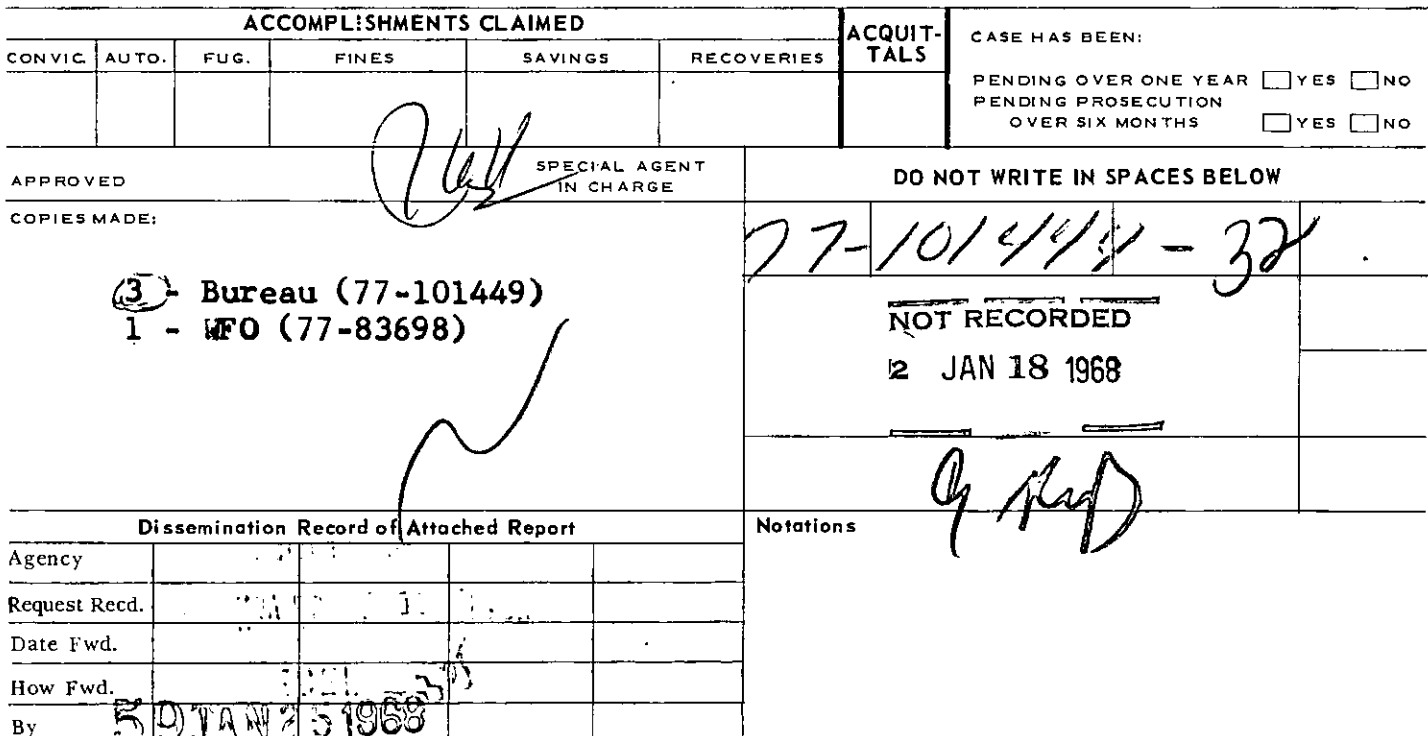 ACCOMPLISHMENTS CLAIMED
CONVIC. AUTO. FUG. FINES SAVINGS RECOVERIES
ACQUIT-
TALS
CASE HAS BEEN:
PENDING OVER ONE YEAR YES NO
PENDING PROSECUTION
OVER SIX MONTHS YES NO
APPROVED
SPECIAL AGENT
IN CHARGE
DO NOT WRITE IN SPACES BELOW
COPIES MADE:
3 - Bureau (77-101449)
1 - WFO (77-83698)
77-101449-32
NOT RECORDED
2 JAN 18 1968
Dissemination Record of Attached Report
Notations
Agency
Request Recd.
Date Fwd.
How Fwd.
By
59 JAN 25 1968